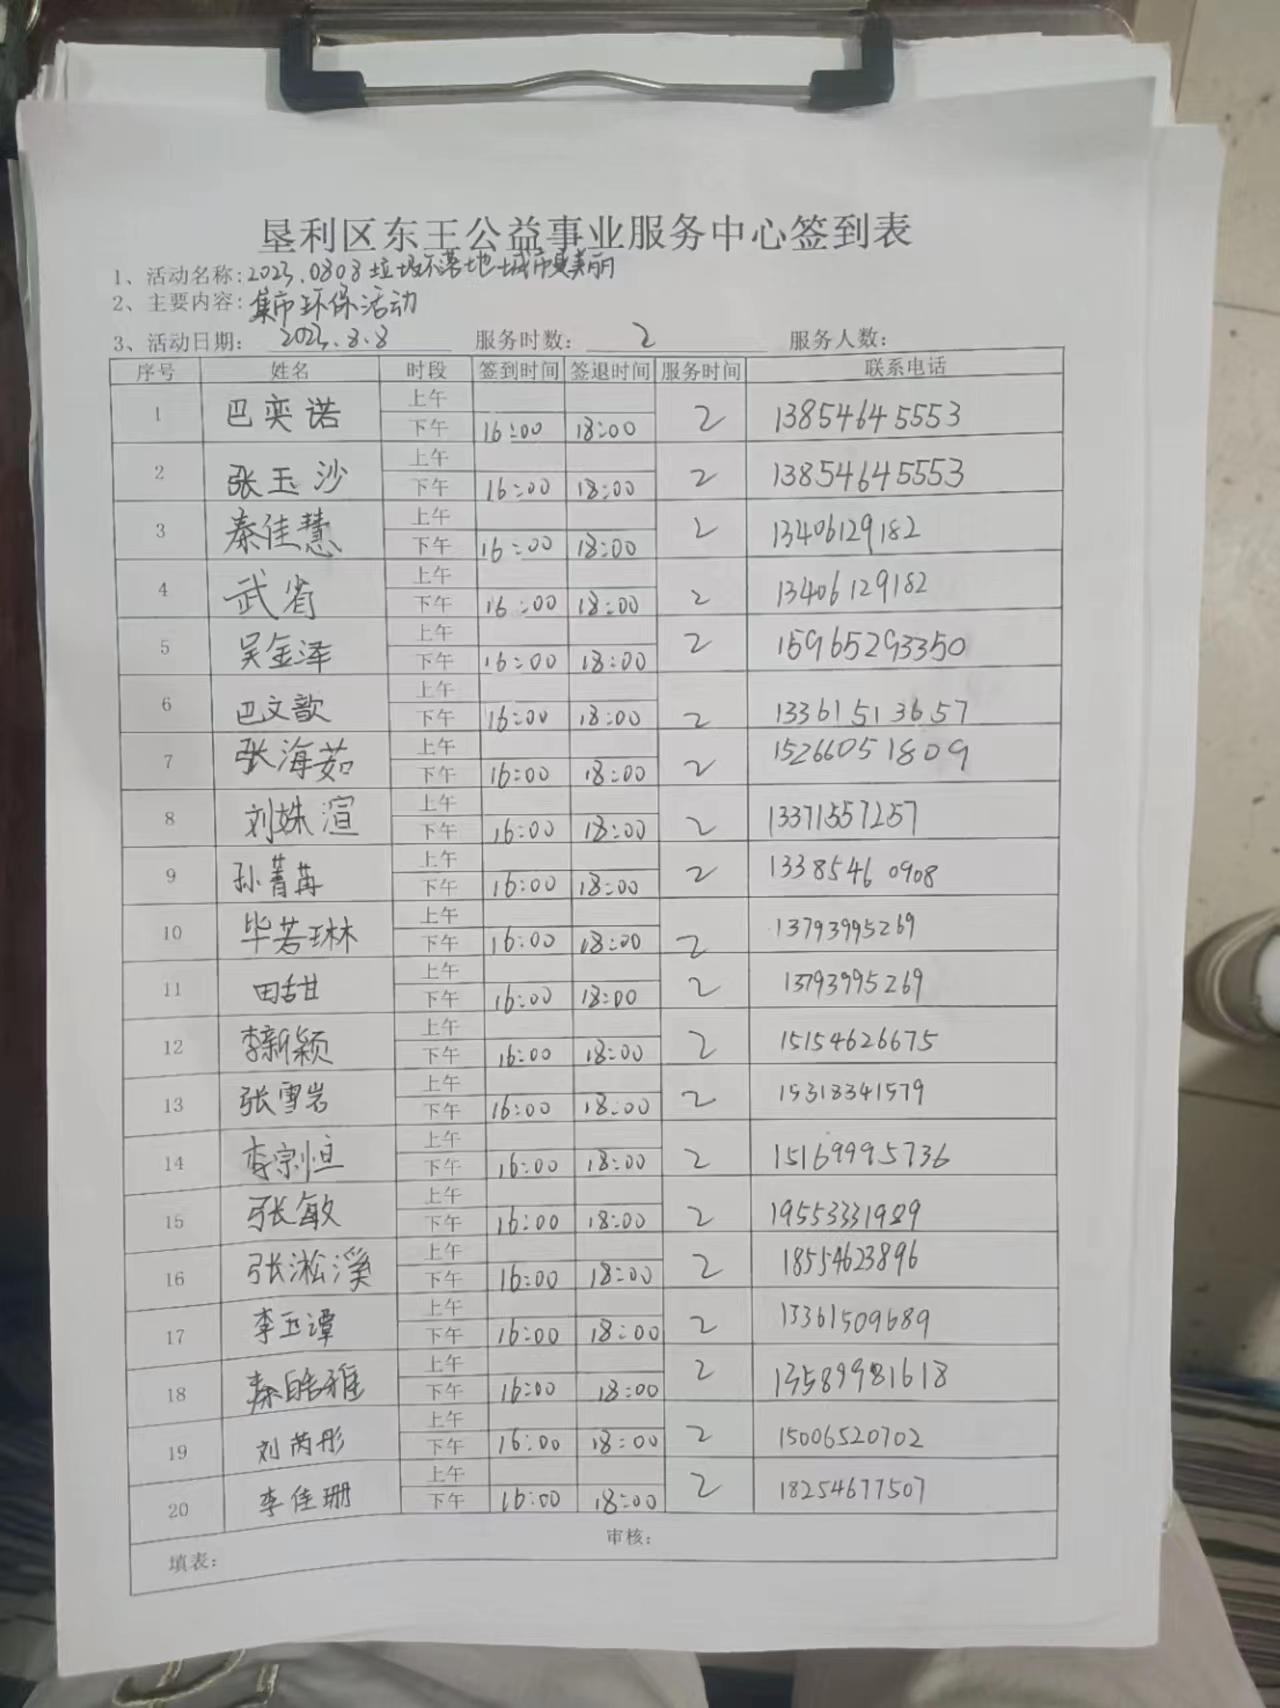 垦利区东王公益事业服务中心签到表
1、活动名称:2023.0808垃圾不落地城市更美丽
2、主要内容:集市环保活动
3、活动日期: 2023.8.8 服务时数: 2 服务人数:
序号 姓名 时段 签到时间 签退时间 服务时间 联系电话
1 巴奕诺 上午 2 13854645553
下午 16:00 18:00
2 张玉沙 上午 2 13854645553
下午 16:00 18:00
3 秦佳慧 上午 2 13406129182
下午 16:00 18:00
4 武省 上午 2 13406129182
下午 16:00 18:00
5 吴金泽 上午 2 15965293350
下午 16:00 18:00
6 巴文歆 上午 2 13361513657
下午 16:00 18:00
7 张海茹 上午 2 15266051809
下午 16:00 18:00
8 刘姝渲 上午 2 13371557257
下午 16:00 18:00
9 孙菁苒 上午 2 13385460908
下午 16:00 18:00
10 毕若琳 上午 2 13793995269
下午 16:00 18:00
11 田甜 上午 2 13793995269
下午 16:00 18:00
12 李新颖 上午 2 15154626675
下午 16:00 18:00
13 张雪岩 上午 2 15318341579
下午 16:00 18:00
14 李宗恒 上午 2 15169995736
下午 16:00 18:00
15 张敏 上午 2 19553331989
下午 16:00 18:00
16 张淞溪 上午 2 18554623896
下午 16:00 18:00
17 李玉谭 上午 2 13361509689
下午 16:00 18:00
18 秦皓雅 上午 2 13589981618
下午 16:00 18:00
19 刘芮彤 上午 2 15006520702
下午 16:00 18:00
20 李佳珊 上午 2 18254677507
下午 16:00 18:00
填表: 审核: